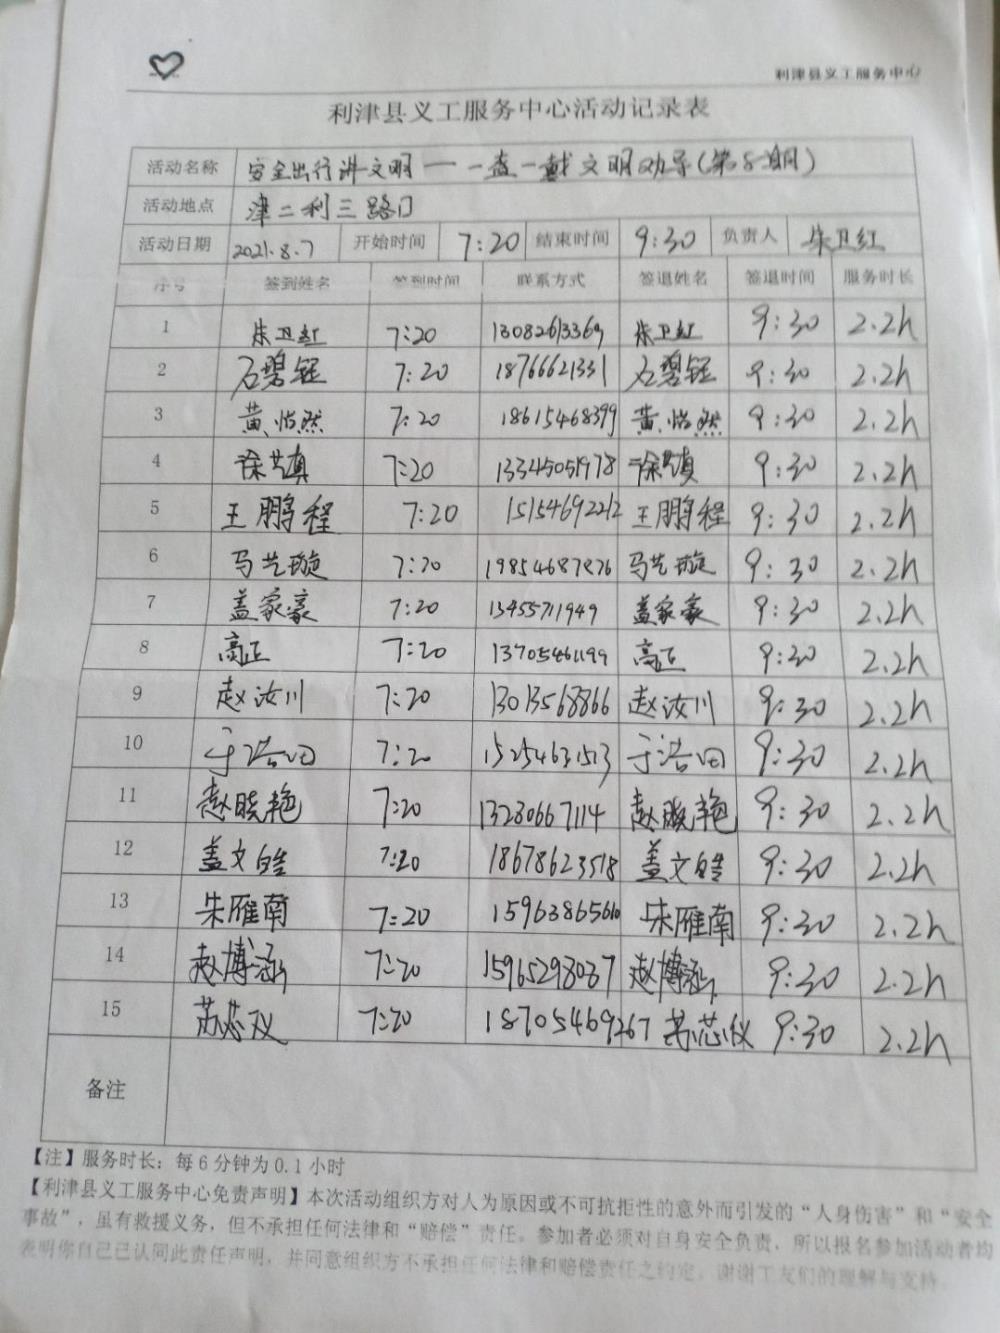 利津县义工服务中心
利津县义工服务中心活动记录表
活动名称 安全出行讲文明——一盔一戴文明劝导(第8期)
活动地点 津二利三路口
活动日期 2021.8.7 开始时间 7:20 结束时间 9:30 负责人 朱卫红
序号 签到姓名 签到时间 联系方式 签退姓名 签退时间 服务时长
1 朱卫红 7:20 13082613369 朱卫红 9:30 2.2h
2 石碧钰 7:20 18766621331 石碧钰 9:30 2.2h
3 黄怡然 7:20 18615468399 黄怡然 9:30 2.2h
4 徐艺真 7:20 13345051978 徐艺真 9:30 2.2h
5 王鹏程 7:20 15154692212 王鹏程 9:30 2.2h
6 马艺璇 7:20 19854687876 马艺璇 9:30 2.2h
7 盖家豪 7:20 13455711949 盖家豪 9:30 2.2h
8 高正 7:20 13705461199 高正 9:30 2.2h
9 赵汝川 7:20 13013568866 赵汝川 9:30 2.2h
10 于浩田 7:20 15254631513 于浩田 9:30 2.2h
11 赵晓艳 7:20 13280667114 赵晓艳 9:30 2.2h
12 盖文皓 7:20 18678623518 盖文皓 9:30 2.2h
13 朱雁南 7:20 15963865610 朱雁南 9:30 2.2h
14 赵博涵 7:20 15965298087 赵博涵 9:30 2.2h
15 苏芯仪 7:20 18705469267 苏芯仪 9:30 2.2h
备注
【注】服务时长：每6分钟为0.1小时
【利津县义工服务中心免责声明】本次活动组织方对人为原因或不可抗拒性的意外而引发的“人身伤害”和“安全
事故”，虽有救援义务，但不承担任何法律和“赔偿”责任。参加者必须对自身安全负责，所以报名参加活动者均
表明你自己已认同此责任声明，并同意组织方不承担任何法律和赔偿责任之约定，谢谢工友们的理解与支持。